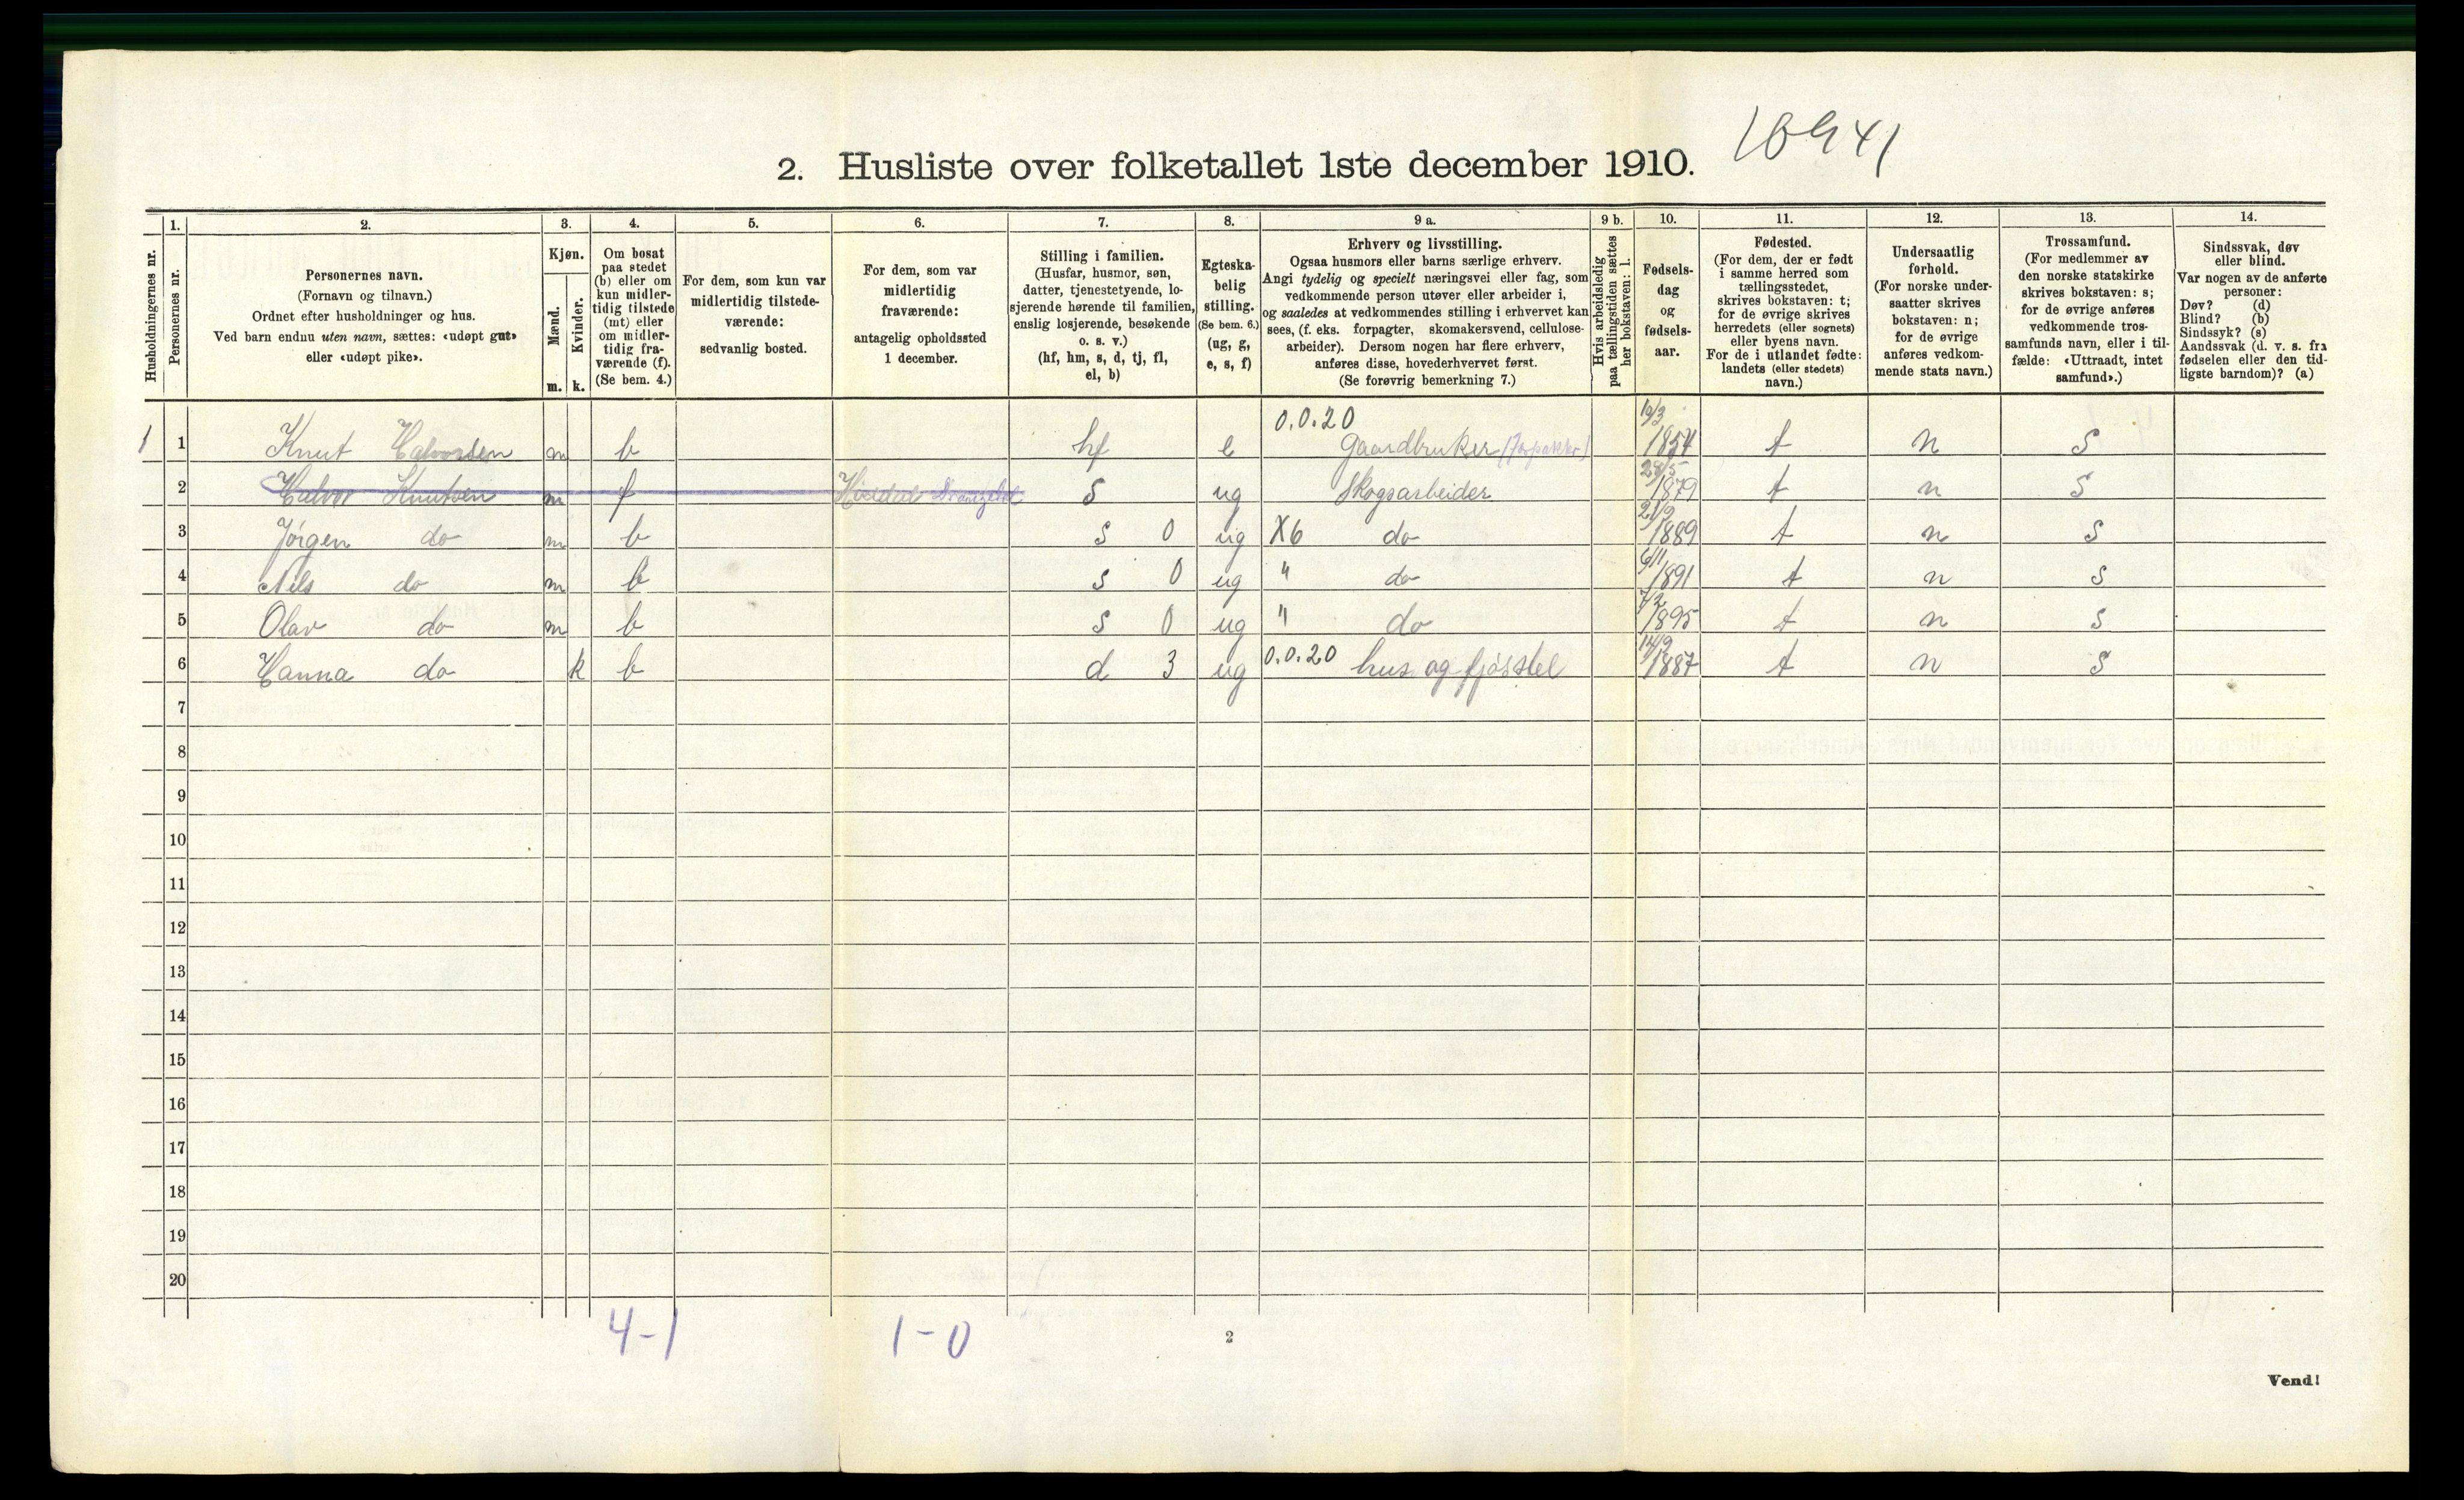 2. Husliste over folketallet 1ste december 1910.
Husholdningernes nr.
1.
Personernes nr.
2.
Personernes navn.
(Fornavn og tilnavn.)
Ordnet efter husholdninger og hus.
Ved barn endnu uten navn, sættes: «udøpt gut»
eller «udøpt pike».
3.
Kjøn.
Mænd.
m.
Kvinder.
k.
4.
Om bosat
paa stedet
(b) eller om
kun midler-
tidig tilstede
(mt) eller
om midler-
tidig fra-
værende (f).
(Se bem. 4.)
5.
For dem, som kun var
midlertidig tilstede-
værende:
sedvanlig bosted.
6.
For dem, som var
midlertidig
fraværende:
antagelig opholdssted
1 december.
7.
Stilling i familien.
(Husfar, husmor, søn,
datter, tjenestetyende, lo-
sjerende hørende til familien,
enslig losjerende, besøkende
o. s. v.)
(hf, hm, s, d, tj, fl,
el, b)
8.
Egteska-
belig
stilling.
(Se bem. 6.)
(ug, g,
e, s, f)
9 a.
Erhverv og livsstilling.
Ogsaa husmors eller barns særlige erhverv.
Angi tydelig og specielt næringsvei eller fag, som
vedkommende person utøver eller arbeider i,
og saaledes at vedkommendes stilling i erhvervet kan
sees, (f. eks. forpagter, skomakersvend, cellulose-
arbeider). Dersom nogen har flere erhverv,
anføres disse, hovederhvervet først.
(Se forøvrig bemerkning 7.)
9 b.
Hvis arbeidsledig
paa tællingstiden sættes
her bokstaven: l.
10.
Fødsels-
dag
og
fødsels-
aar.
11.
Fødested.
(For dem, der er født
i samme herred som
tællingsstedet,
skrives bokstaven: t;
for de øvrige skrives
herredets (eller sognets)
eller byens navn.
For de i utlandet fødte:
landets (eller stedets)
navn.)
12.
Undersaatlig
forhold.
(For norske under-
saatter skrives
bokstaven: n;
for de øvrige
anføres vedkom-
mende stats navn.)
13.
Trossamfund.
(For medlemmer av
den norske statskirke
skrives bokstaven: s;
for de øvrige anføres
vedkommende tros-
samfunds navn, eller i til-
fælde: «Uttraadt, intet
samfund».)
14.
Sindssvak, døv
eller blind.
Var nogen av de anførte
personer:
Døv? (d)
Blind? (b)
Sindssyk? (s)
Aandssvak (d. v. s. fra
fødselen eller den tid-
ligste barndom)? (a)
1 1 Knut Halvorsen m b hf e 0.0.20 Gaardbruker 1854 t n s
2 Halvor Knutsen m f s ug Skogsarbeider 1879 t n s
3 Jörgen do m b s 0 ug X6 do 21/9 1889 t n s
4 Nels do m b s 0 ug " do 6/11 1891 t n s
5 Olav do m b s 0 ug " do 7/2 1895 t n s
6 Hanna do k b d 3 ug 0.0.20 hus og fjösstel 14/9 1887 t n s
7
8
9
10
11
12
13
14
15
16
17
18
19
20
4-1 1-0
2
Vend!